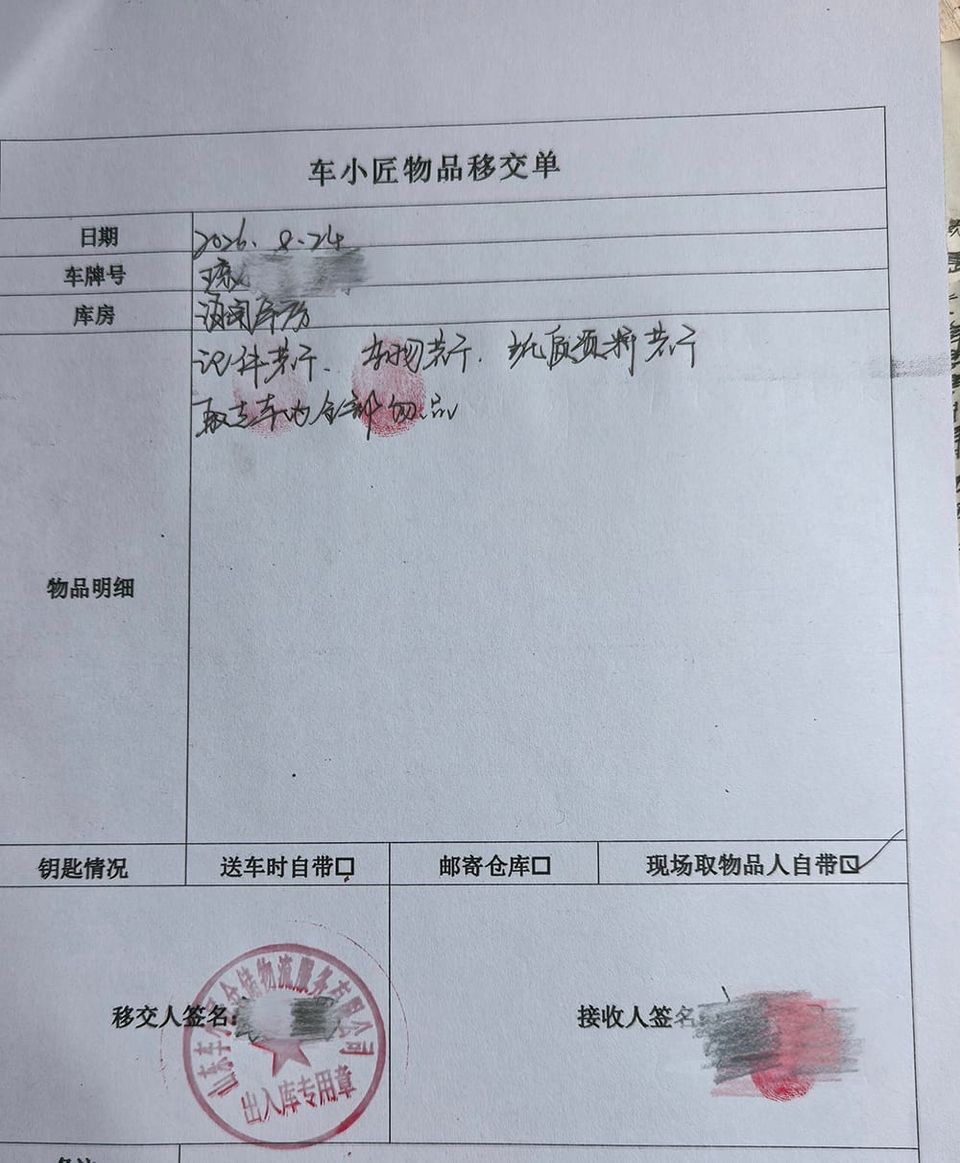 车小匠物品移交单
日期 2026.8.24
车牌号 琼
库房 库房
物品明细 证件若干、衣物若干、纸质资料若干
取走车内全部物品
钥匙情况 送车时自带□ 邮寄仓库□ 现场取物品人自带☑
移交人签名: 接收人签名:
山东车小匠仓储物流服务有限公司
出入库专用章